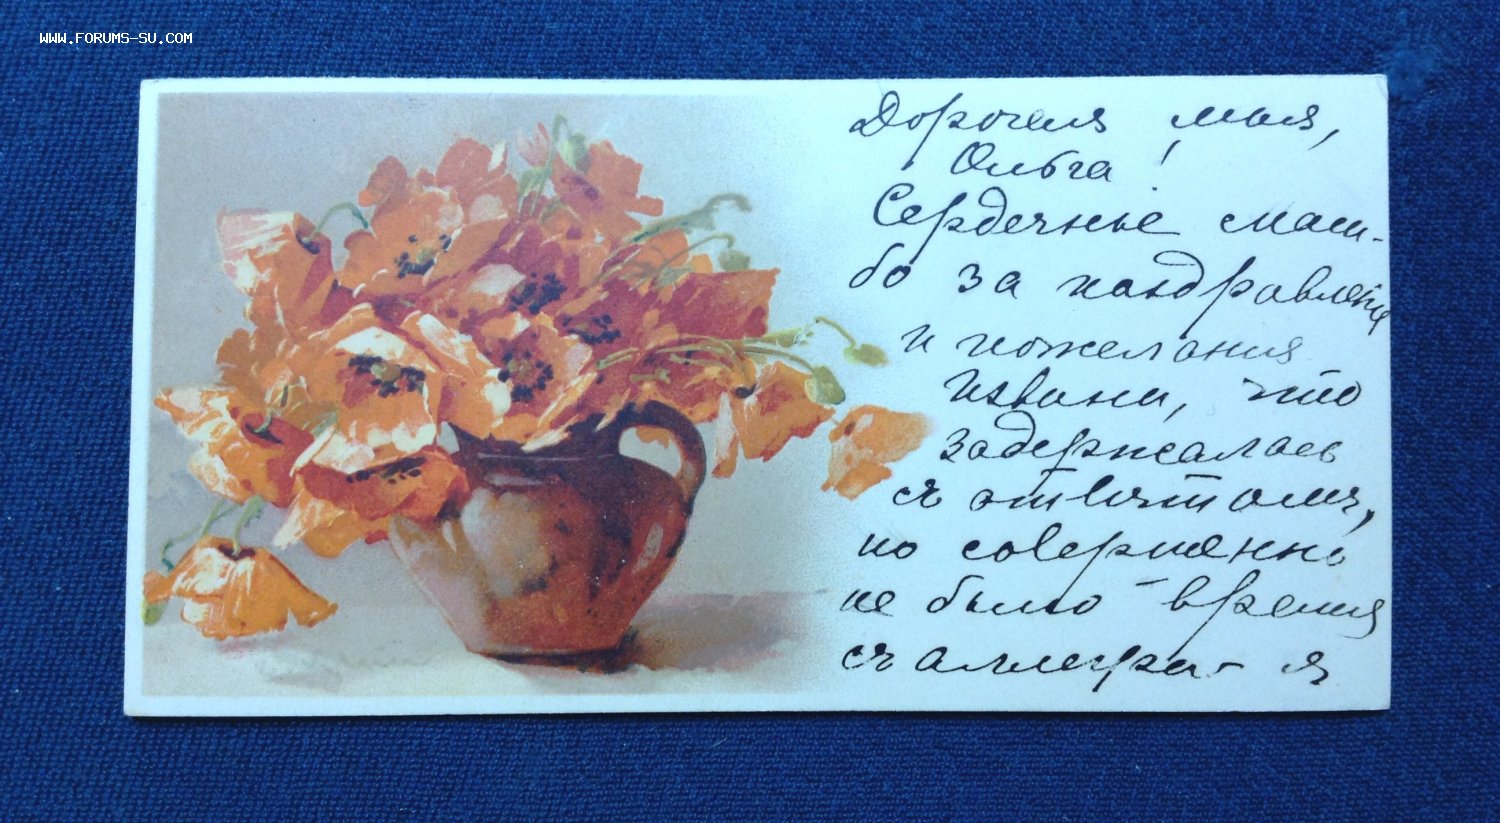 WWW.FORUMS-SU.COM
Дорогая моя,
Ольга!
Сердечные спаси-
бо за поздравленіе
и пожелания
Извини, что
задержалась
съ отвѣтомъ,
но совершенно
не было время
съ - я